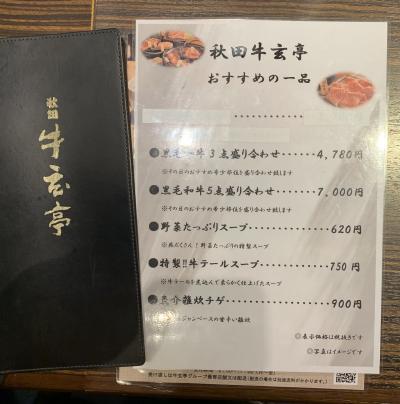 秋田
牛玄亭
秋田牛玄亭
おすすめの一品
●黒毛和牛3点盛り合わせ・・・・・・・4,780円
※その日のおすすめ希少部位を盛り合わせ致します
●黒毛和牛5点盛り合わせ・・・・・・・7,000円
※その日のおすすめ希少部位を盛り合わせ致します
●野菜たっぷりスープ・・・・・・・620円
野菜たっぷりの特製スープ
●特製!!牛テールスープ・・・・・・・750円
※牛テールを煮込んで柔らかく仕上げたスープ
雑炊チゲ・・・・・・・900円
ジャンベースの甘辛い雑炊
◎表示価格は税抜きです
◎写真はイメージです